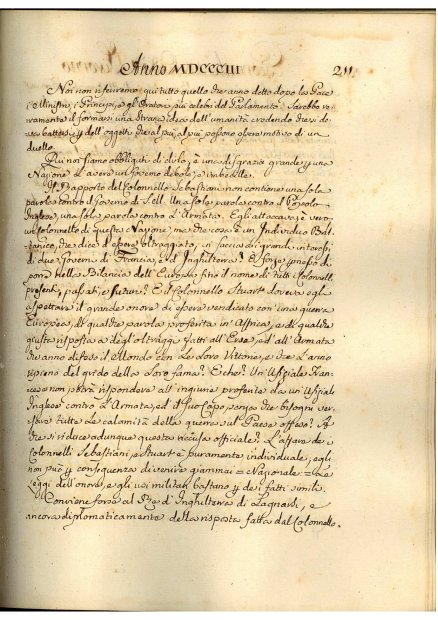 Anno MDCCCIII 211
Noi non riferiremo qui tutto quello che anno detto dopo la Pace
i Ministri, i Principi, e gl'Oratori più celebri del Parlamento. Sarebbe ve-
ramente il formarsi una strana idea dell'umanità credendo che si de-
va battersi p dell'oggetti che al più, al più possono essere motivo di un
duello.
Qui noi siamo obbligati di dirlo; è una disgrazia grande p una
Nazione l'avere un Governo debole, e imbecille.
Il Rapporto del Colonnello Sebastiani non contiene una sola
parola contro il Governo di una sola parola contro il Popolo
Inglese, una sola parola contro l'Armata. Egli attaccava, è vero,
un Colonnello di questa Nazione, ma che cosa è un Individuo Bri-
tannico, che dice d'essere oltraggiato, in faccia ai grandi interessi
di due Governi di Francia, ed Inghilterra? È forse preso di
porre nella Bilancia dell'Europa fino il nome di tutti i Colonnelli
presenti, passati, e futuri? E il Colonnello Stuart doveva egli
aspettare il grande onore di essere vendicato con una guerra
Europea, di qualche parola proferita in Affrica, e di qualche
giusta risposta a degl'oltraggi fatti all'Eroe, ed all'Armata
che anno difeso il Mondo con le Loro Vittorie, e che l'anno
ripieno del grido della Loro fama? E che? Un Uffiziale Fran-
cese non potrà rispondere all'ingiurie proferite da un'Uffizial
Inglese contro l'Armata, ed il suo Capo, senza che bisogni ver-
sare tutte le calamità della guerra sul Paese offeso? A
che si riduce adunque questa ricusa officiale? L'affare de i
Colonnelli Sebastiani, e Stuart è puramente individuale; egli
non può p conseguenza divenire giammai = Nazionale = Le
Leggi dell'onore, e gli usi militari bastano p de i fatti simili.
Conviene forse al Re d'Inghilterra di Lagnarsi, e
ancora diplomaticamente della risposta fatta dal Colonnello